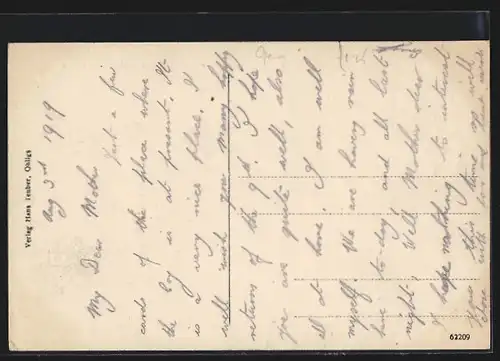 Verlag Hans Tauber, Ohligs
Aug 3rd 1919
My Dear Mother Just a few
cards of the place where
the Coy is at present. It
is a very nice place. I
will wish you many happy
returns of the I hope
you are quite well, also
all at home. I am well
myself. We are having rain
here to-day and all last
night. Well Mother dear
I have nothing to interest
this time so will
close with love and best wishes
62209